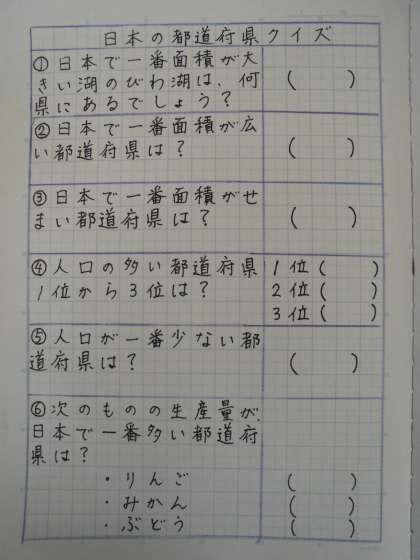 日本の都道府県クイズ
①日本で一番面積が大
きい湖のびわ湖は、何
県にあるでしょう？
(　　)
②日本で一番面積が広
い都道府県は？
(　　)
③日本で一番面積がせ
まい都道府県は？
(　　)
④人口の多い都道府県
1位から3位は？
1位(　　)
2位(　　)
3位(　　)
⑤人口が一番少ない都
道府県は？
(　　)
⑥次のものの生産量が、
日本で一番多い都道府
県は？
・りんご (　　)
・みかん (　　)
・ぶどう (　　)